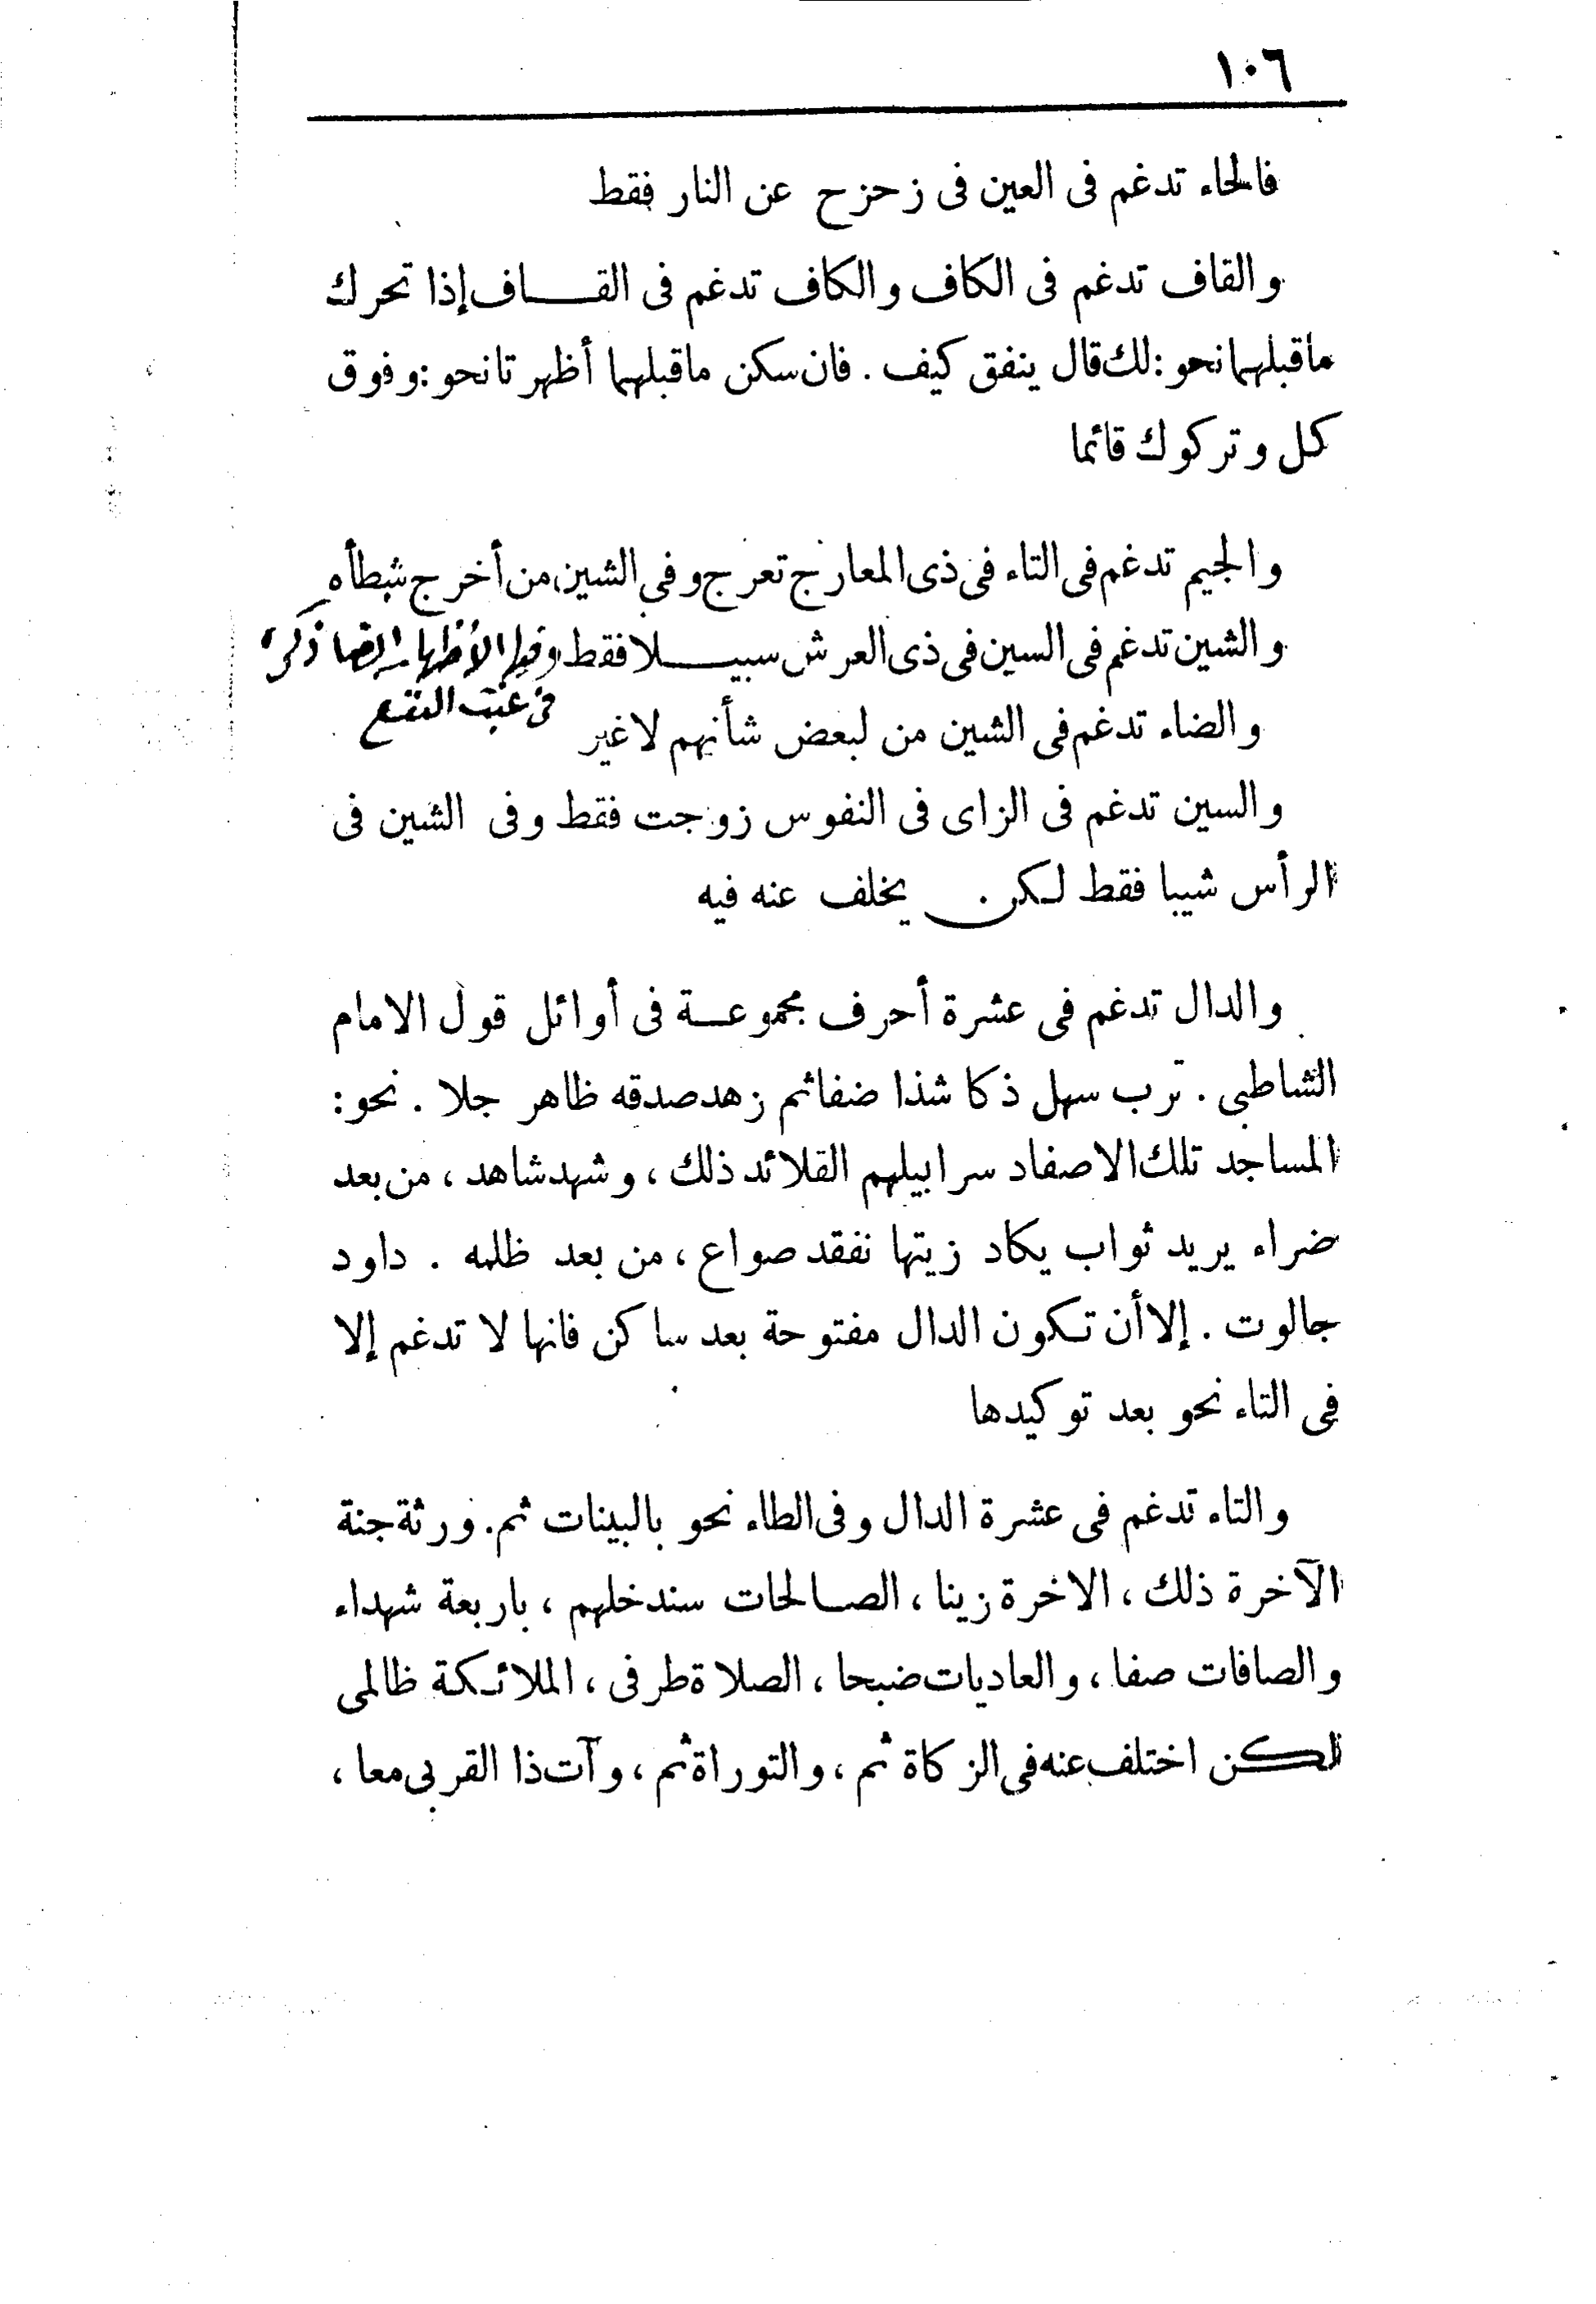 ١٠٦
فالحاء تدغم فى العين فى زحزح عن النار فقط
والقاف تدغم فى الكاف والكاف تدغم فى القـاف إذا تحرك
ماقبلهما نحو : لك قال ينفق كيف . فان سكن ماقبلهما أظهرتا نحو : وفوق
كل وتركوك قائما
والجيم تدغم فى التاء فى ذى المعارج تعرج وفى الشين من أخرج شطأه
والشين تدغم فى السين فى ذى العرش سبيـلا فقط وفيه الأظهار أيضا ذكره
فى غيث النفع
والضاء تدغم فى الشين من لبعض شأنهم لاغير
والسين تدغم فى الزاى فى النفوس زوجت فقط وفى الشين فى
الرأس شيبا فقط لـكن يخلف عنه فيه
والدال تدغم فى عشرة أحرف مجموعـة فى أوائل قول الامام
الشاطبى . ترب سهل ذكا شذا ضفا ثم زهد صدقه ظاهر جلا . نحو :
المساجد تلك الاصفاد سرابيلهم القلائد ذلك ، وشهد شاهد ، من بعد
ضراء يريد ثواب يكاد زيتها نفقد صواع ، من بعد ظلمه . داود
جالوت . إلا أن تـكون الدال مفتوحة بعد ساكن فانها لا تدغم إلا
فى التاء نحو بعد توكيدها
والتاء تدغم فى عشرة الدال وفى الطاء نحو بالبينات ثم . ورثة جنة
الآخرة ذلك ، الاخرة زينا ، الصـالحات سندخلهم ، باربعة شهداء
والصافات صفا ، والعاديات ضبحا ، الصلاة طرفى ، الملائـكة ظالمى
لـكن اختلف عنه فى الزكاة ثم ، والتوراة ثم ، وآت ذا القربى معا ،